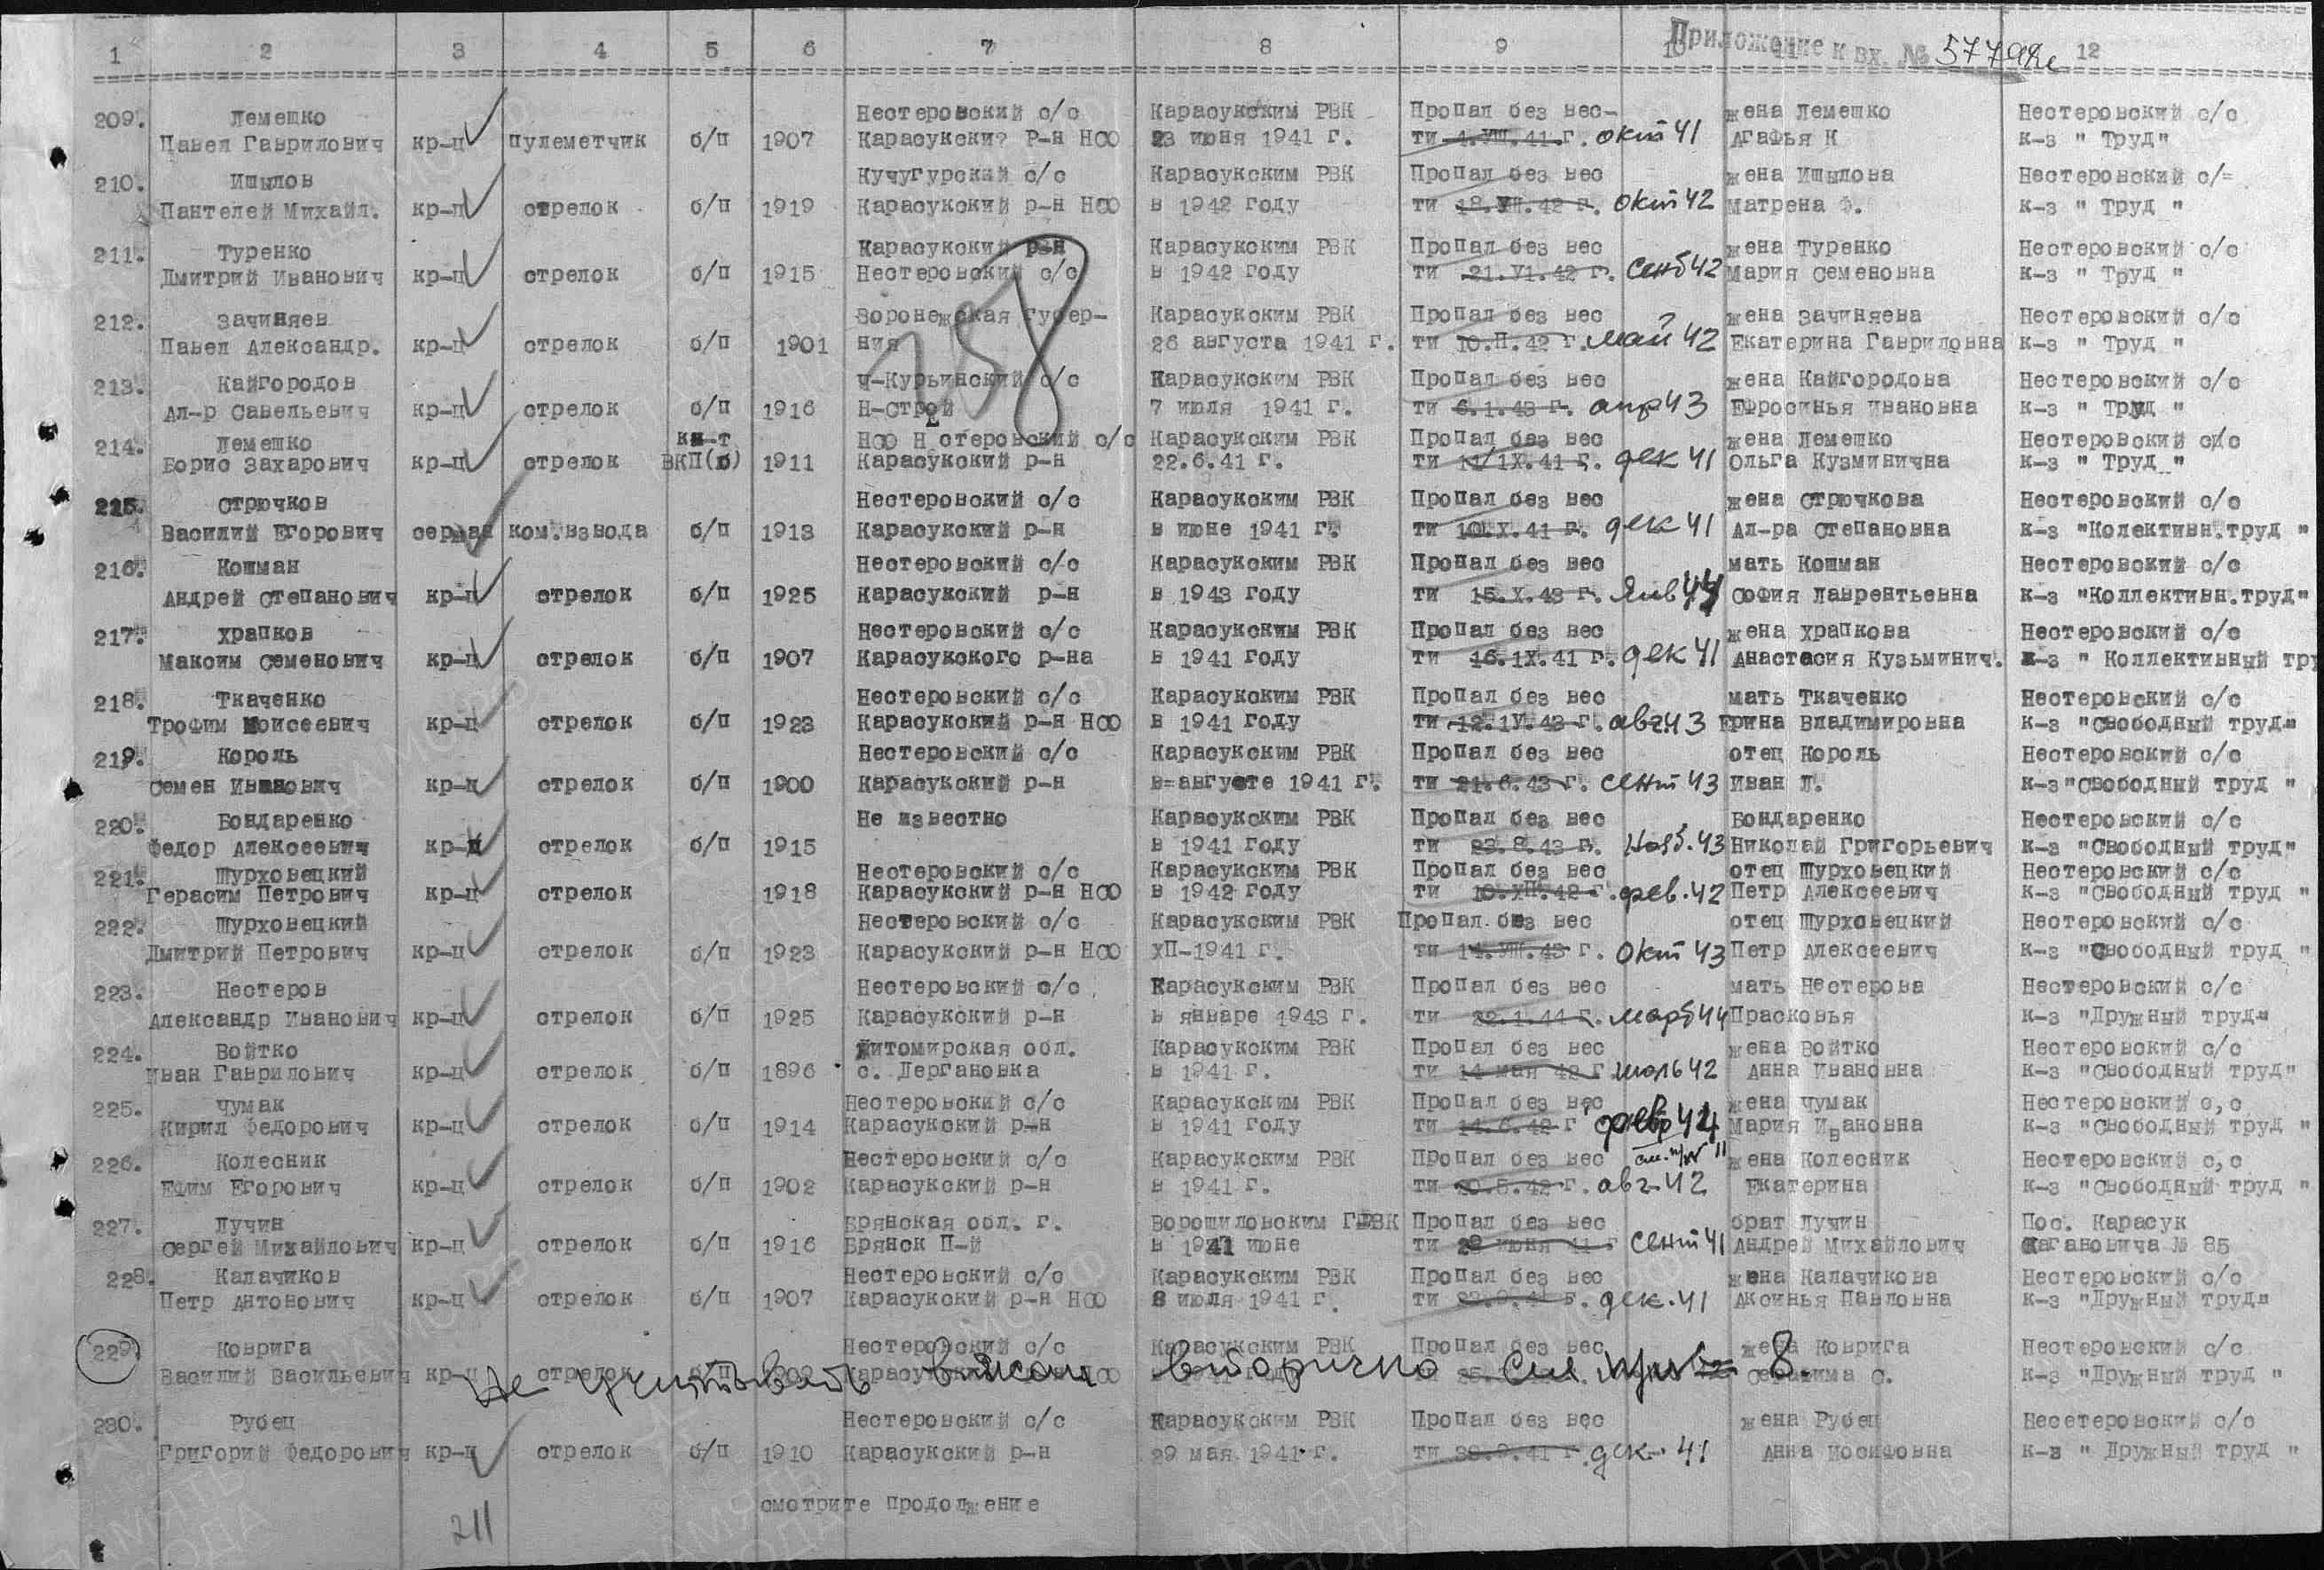 Приложение к вх. № 57798с
1 2 3 4 5 6 7 8 9 10 12
209. Лемешко Нестеровский с/с Карасукским РВК Пропал без вес- жена Лемешко Нестеровский с/с
Павел Гаврилович кр-ц пулеметчик б/п 1907 Карасукски? р-н НСО 23 июня 1941 г. ти 4.УШ.41 г. окт 41 Агафья К к-з " Труд"
210. Ишылов Кучугурский с/с Карасукским РВК Пропал без вес жена Ишылова Нестеровский с/=
Пантелей Михайл. кр-ц стрелок б/п 1919 Карасукский р-н НСО в 1942 году ти 18.УШ.42 г. окт 42 Матрена Ф. к-з " Труд "
211. Туренко Карасукский р-н Карасукским РВК Пропал без вес жена Туренко Нестеровский с/с
Дмитрий Иванович кр-ц стрелок б/п 1915 Нестеровский с/с в 1942 году ти 21.У1.42 г. сенб 42 Мария Семеновна к-з " Труд "
158
212. Зачиняев Воронежская губер- Карасукским РВК Пропал без вес жена Зачиняева Нестеровский с/с
Павел Александр. кр-ц стрелок б/п 1901 ния 26 августа 1941 г. ти 10.П.42 г. май 42 Екатерина Гавриловна к-з " Труд "
213. Кайгородов Ч-Курьинский с/с Карасукским РВК Пропал без вес жена Кайгородова Нестеровский с/с
Ал-р Савельевич кр-ц стрелок б/п 1916 Н-Строй 7 июля 1941 г. ти 6.1.43 г. апр 43 Ефросинья Ивановна к-з " Труд "
214. Лемешко кн-т НСО Н стеровский с/с Карасукским РВК Пропал без вес жена Лемешко Нестеровский с/с
Борис Захарович кр-ц стрелок ВКП(б) 1911 Карасукский р-н 22.6.41 г. ти 11/1Х.41 г. дек 41 Ольга Кузминична к-з " Труд "
215. Стрючков Нестеровский с/с Карасукским РВК Пропал без вес жена Стрючкова Нестеровский с/с
Василий Егорович ком.взвода б/п 1913 Карасукский р-н в июне 1941 г. ти 10.Х.41 г. дек 41 Ал-ра Степановна к-з "Колективн.труд "
216. Кошман Нестеровский с/с Карасукским РВК Пропал без вес мать Кошман Нестеровский с/с
Андрей Степанович кр-ц стрелок б/п 1925 Карасукский р-н в 1943 году ти 15.Х.43 г. Янв 44 София Лаврентьевна к-з "Коллективн.труд"
217. Храпков Нестеровский с/с Карасукским РВК Пропал без вес жена Храпкова Нестеровский с/с
Максим Семенович кр-ц стрелок б/п 1907 Карасукского р-на в 1941 году ти 16.1Х.41 г. дек 41 Анастасия Кузьминич. к-з " Коллективный тру
218. Ткаченко Нестеровский с/с Карасукским РВК Пропал без вес мать Ткаченко Нестеровский с/с
Трофим Моисеевич кр-ц стрелок б/п 1923 Карасукский р-н НСО в 1941 году ти 12.1У.43 г. авг.43 Ерина Владимировна к-з "Свободный труд"
219. Король Нестеровский с/с Карасукским РВК Пропал без вес отец Король Нестеровский с/с
Семен Иванович кр-ц стрелок б/п 1900 Карасукский р-н в=августе 1941 г. ти 21.6.43 г. сент 43 Иван Л. к-з"Свободный труд "
220. Бондаренко Не известно Карасукским РВК Пропал без вес Бондаренко Нестеровский с/с
Федор Алексеевич кр-ц стрелок б/п 1915 в 1941 году ти 23.8.43 г. нояб.43 Николай Григорьевич к-з "Свободный труд"
221. Шурховецкий Нестеровский с/с Карасукским РВК Пропал без вес отец Шурховецкий Нестеровский с/с
Герасим Петрович кр-ц стрелок 1918 Карасукский р-н НСО в 1942 году ти 10.ХП.42 г. фев.42 Петр Алексеевич к-з "Свободный труд "
222. Шурховецкий Нестеровский с/с Карасукским РВК Пропал без вес отец Шурховецкий Нестеровский с/с
Дмитрий Петрович кр-ц стрелок б/п 1923 Карасукский р-н НСО ХП-1941 г. ти 14.УШ.43 г. окт 43 Петр Алексеевич к-з "Свободный труд "
223. Нестеров Нестеровский с/с Карасукским РВК Пропал без вес мать Нестерова Нестеровский с/с
Александр Иванович кр-ц стрелок б/п 1925 Карасукский р-н в январе 1943 г. ти 22.1.44 г. март 44 Прасковья к-з "Дружный труд"
224. Войтко Житомирская обл. Карасукским РВК Пропал без вес жена Войтко Нестеровский с/с
Иван Гаврилович кр-ц стрелок б/п 1896 с. Дергановка в 1941 г. ти 14 мая 42 г июль 42 Анна Ивановна к-з "Свободный труд"
225. Чумак Нестеровский с/с Карасукским РВК Пропал без вес жена Чумак Нестеровский с,с
Кирил Федорович кр-ц стрелок б/п 1914 Карасукский р-н в 1941 году ти 14.6.42 г февр 44 Мария Ивановна к-з "Свободный труд "
226. Колесник Нестеровский с/с Карасукским РВК Пропал без вес жена Колесник Нестеровский с,с
Ефим Егорович кр-ц стрелок б/п 1902 Карасукский р-н в 1941 г. ти 20.5.42 г. авг.42 Екатерина к-з "Свободный труд "
227. Лучин Брянская обл. г. Ворошиловским ГРВК Пропал без вес брат Лучин Пос. Карасук
Сергей Михайлович кр-ц стрелок б/п 1916 Брянск П-й в 1941 июне ти 28 июня 41 г сент 41 Андрей Михайлович Кагановича № 85
228. Калачиков Нестеровский с/с Карасукским РВК Пропал без вес жена Калачикова Нестеровский с/с
Петр Антонович кр-ц стрелок б/п 1907 Карасукский р-н НСО 8 июля 1941 г. ти 22.9.41 г. дек.41 Аксинья Павловна к-з "Дружный труд"
229. Коврига Нестеровский с/с Карасукским РВК Пропал без вес жена Коврига Нестеровский с/с
Василий Васильевич кр-ц стрелок б/п Карасукский НСО ти Серафима С. к-з "Дружный труд "
Не учитывать вписан вторично см 8.
230. Рубец Нестеровский с/с Карасукским РВК Пропал без вес жена Рубец Несетеровский с/с
Григорий Федорович кр-ц стрелок б/п 1910 Карасукский р-н 29 мая 1941 г. ти 30.9.41 г. дек. 41 Анна Иосифовна к-з " Дружный труд "
смотрите продолжение
211